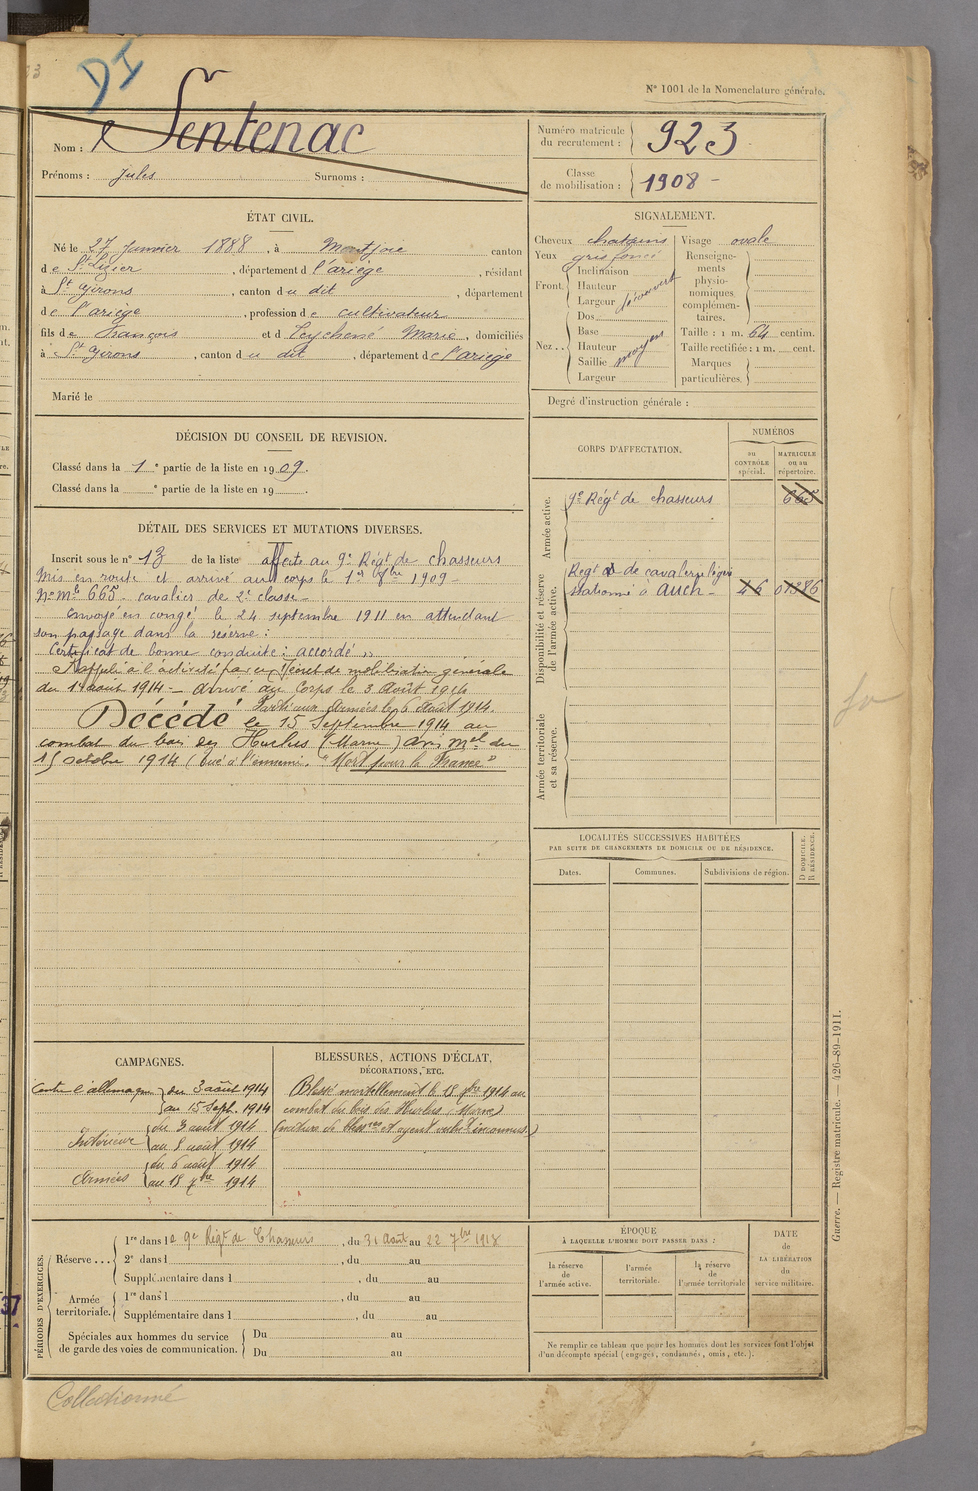 DI
N° 1001 de la Nomenclature générale.
Nom : Sentenac
Prénoms : Jules Surnoms :
Numéro matricule du recrutement : 923
Classe de mobilisation : 1908
ÉTAT CIVIL.
Né le 27 Janvier 1888, à Montjoie canton
de St Lizier, département d l'ariège, résidant
à St Girons, canton du dit, département
de l'ariège, profession de cultivateur
fils de François et d Teychené Marie, domiciliés
à St Girons, canton du dit, département de l'ariège
Marié le
SIGNALEMENT.
Cheveux chatains
Yeux gris foncé
Front. Inclinaison
Hauteur
Largeur découvert
Nez.. Dos
Base
Hauteur
Saillie moyen
Largeur
Visage ovale
Renseignements physionomiques complémentaires.
Taille : 1 m. 64 centim.
Taille rectifiée : 1 m. cent.
Marques particulières.
Degré d'instruction générale :
DÉCISION DU CONSEIL DE REVISION.
Classé dans la 1e partie de la liste en 1909.
Classé dans la e partie de la liste en 19
CORPS D'AFFECTATION.
NUMÉROS
au CONTRÔLE spécial.
MATRICULE ou au répertoire.
Armée active.
9e Régt de chasseurs 665
Disponibilité et réserve de l'armée active.
Regt de cavalerie légère
stationné à Auch - 46 01386
Armée territoriale et sa réserve.
DÉTAIL DES SERVICES ET MUTATIONS DIVERSES.
Inscrit sous le n° 13 de la liste affecté au 9e Régt de chasseurs
Mis en route et arrivé au corps le 1er 8bre 1909 -
No Mle 665 - cavalier de 2e classe -
envoyé en congé le 24 septembre 1911 en attendant
son passage dans la réserve :
Certificat de bonne conduite : accordé
Rappelé à l'activité par Décret de mobilisation générale
du 1er août 1914 - arrivé au Corps le 3 Août 1914
Parti aux Armées le 6 Août 1914.
Décédé le 15 Septembre 1914 au
combat du bois des Hurlus (Marne) avis mel du
15 octobre 1914 (tué à l'ennemi. "Mort pour la France"
LOCALITÉS SUCCESSIVES HABITÉES
PAR SUITE DE CHANGEMENTS DE DOMICILE OU DE RÉSIDENCE.
Dates. Communes. Subdivisions de région. D DOMICILE. R RÉSIDENCE.
CAMPAGNES.
Contre l'allemagne du 3 août 1914
au 15 Sept. 1914
Intérieur du 3 août 1914
au 5 août 1914
Armées du 6 août 1914
au 15 7bre 1914
BLESSURES, ACTIONS D'ÉCLAT,
DÉCORATIONS, ETC.
Blessé mortellement le 15 7bre 1914 au
combat du bois des Hurlus (Marne)
(nature de blessres et agent vulnt inconnus.)
PÉRIODES D'EXERCICES.
Réserve... 1re dans le 9e Régt de Chasseurs, du 31 Août au 22 7bre 1918
2e dans l, du au
Supplémentaire dans l, du au
Armée territoriale. 1re dans l, du au
Supplémentaire dans l, du au
Spéciales aux hommes du service de garde des voies de communication. Du au
Du au
ÉPOQUE
À LAQUELLE L'HOMME DOIT PASSER DANS :
la réserve de l'armée active.
l'armée territoriale.
la réserve de l'armée territoriale
DATE de LA LIBÉRATION du service militaire.
Ne remplir ce tableau que pour les hommes dont les services font l'objet
d'un décompte spécial (engagés, condamnés, omis, etc.).
Guerre. — Registre matricule. — 426-89-1911.
37
Collationné